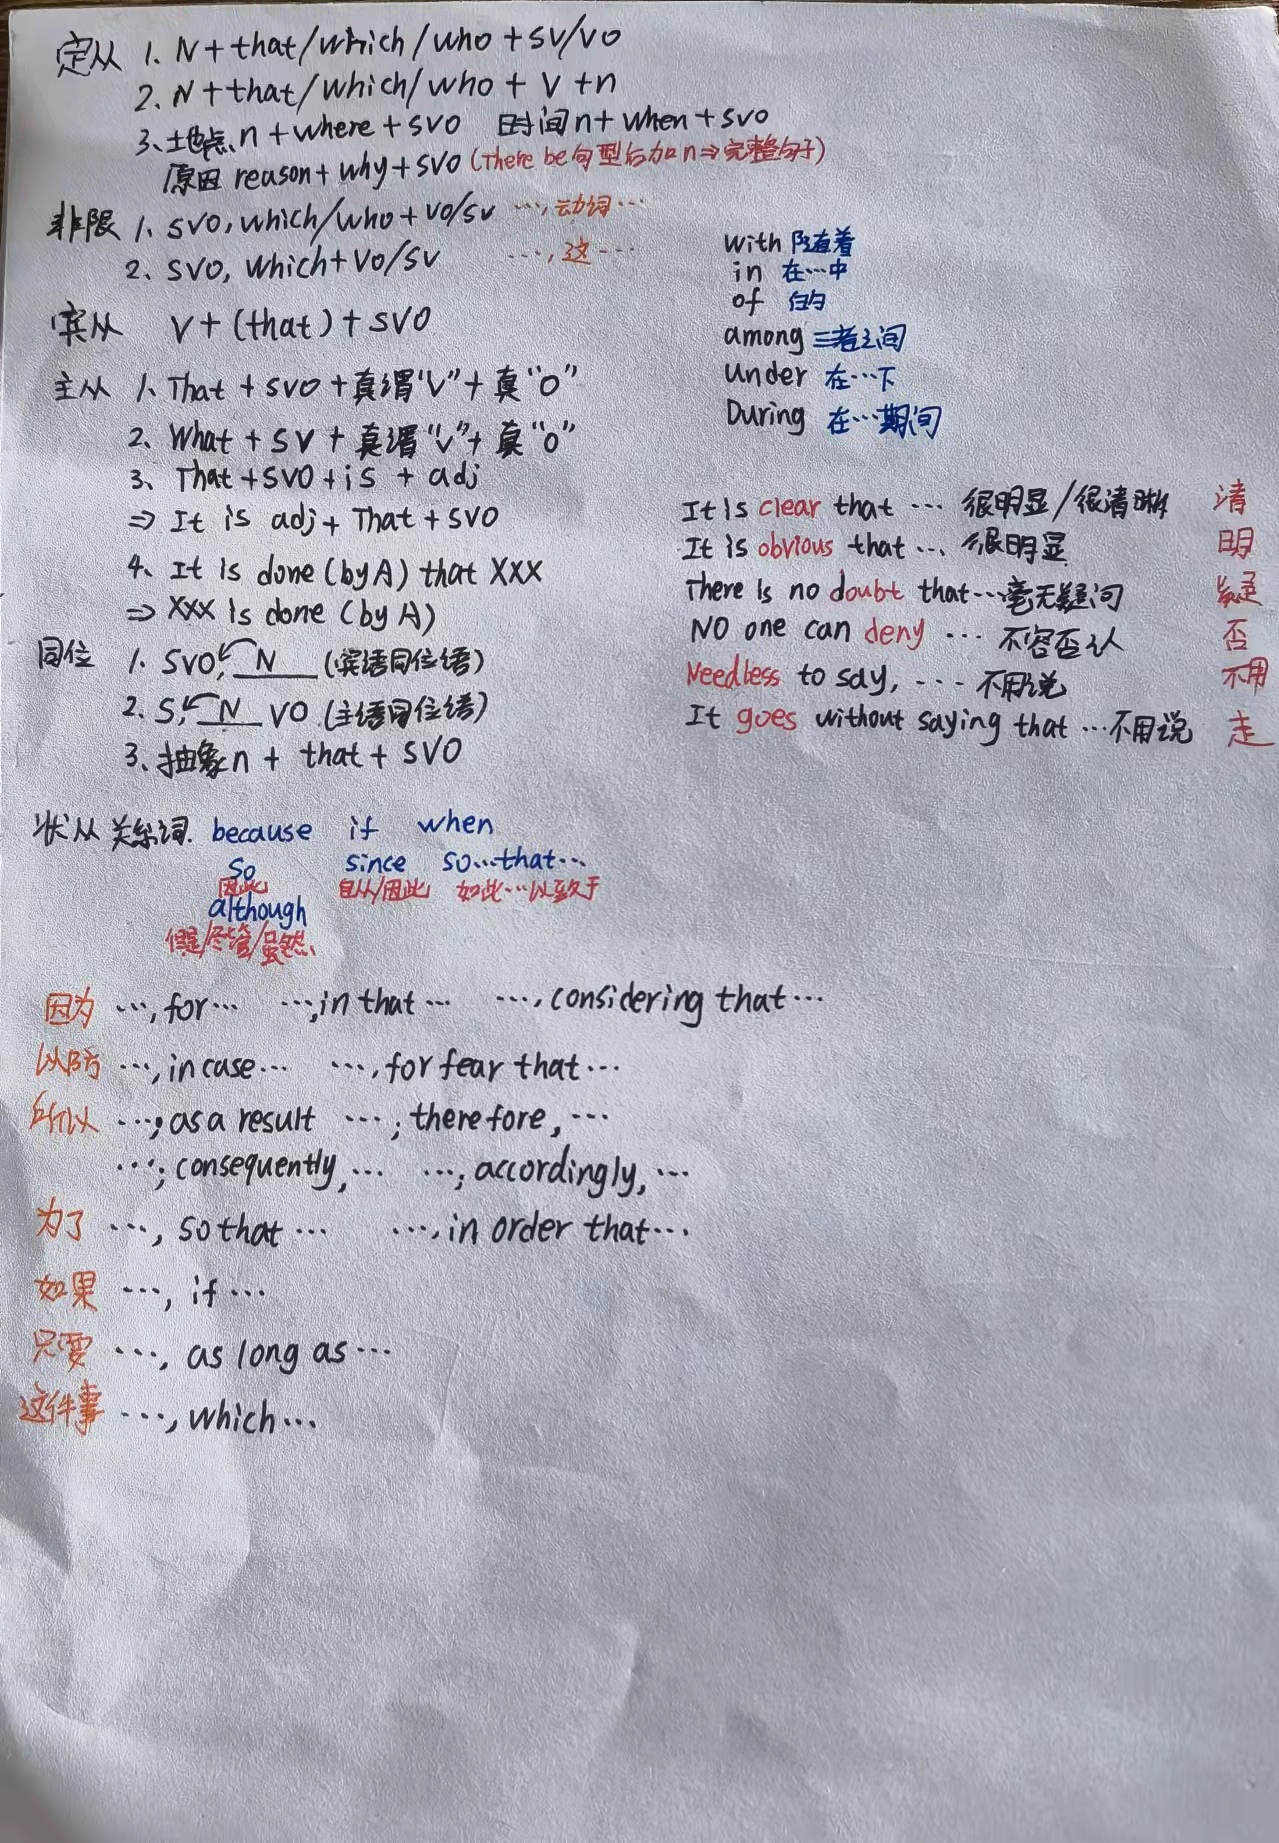 定从 1. N+that/which/who+sv/vo
2. N+that/which/who+V+n
3、地点n+where+svo 时间n+when+svo
原因 reason+why+svo (There be句型后加n⇒完整句子)
非限 1. svo, which/who+vo/sv …,动词…
2. svo, which+vo/sv …,这…
宾从 V+(that)+svo
主从 1. That+svo+真谓"V"+真"O"
2. What+sv+真谓"V"+真"O"
3、That+svo+is+adj
⇒ It is adj+That+svo
4、It is done (by A) that XXX
⇒ XXX is done (by A)
同位 1. svo, N (宾语同位语)
2. S, N VO (主语同位语)
3、抽象n+that+svo
with 随着
in 在…中
of 的
among 三者之间
under 在…下
During 在…期间
It is clear that … 很明显/很清晰 清
It is obvious that … 很明显 明
There is no doubt that … 毫无疑问 疑
NO one can deny … 不容否认 否
Needless to say, … 不用说 不用
It goes without saying that … 不用说 走
状从 关系词. because if when
so since so…that…
因此 自从/因此 如此…以致于
although
但是/尽管/虽然
因为 …, for… …, in that … …, considering that …
以防 …, in case… …, for fear that …
所以 …; as a result …; therefore, …
…; consequently, … …; accordingly, …
为了 …, so that … …, in order that …
如果 …, if …
只要 …, as long as …
这件事 …, which …